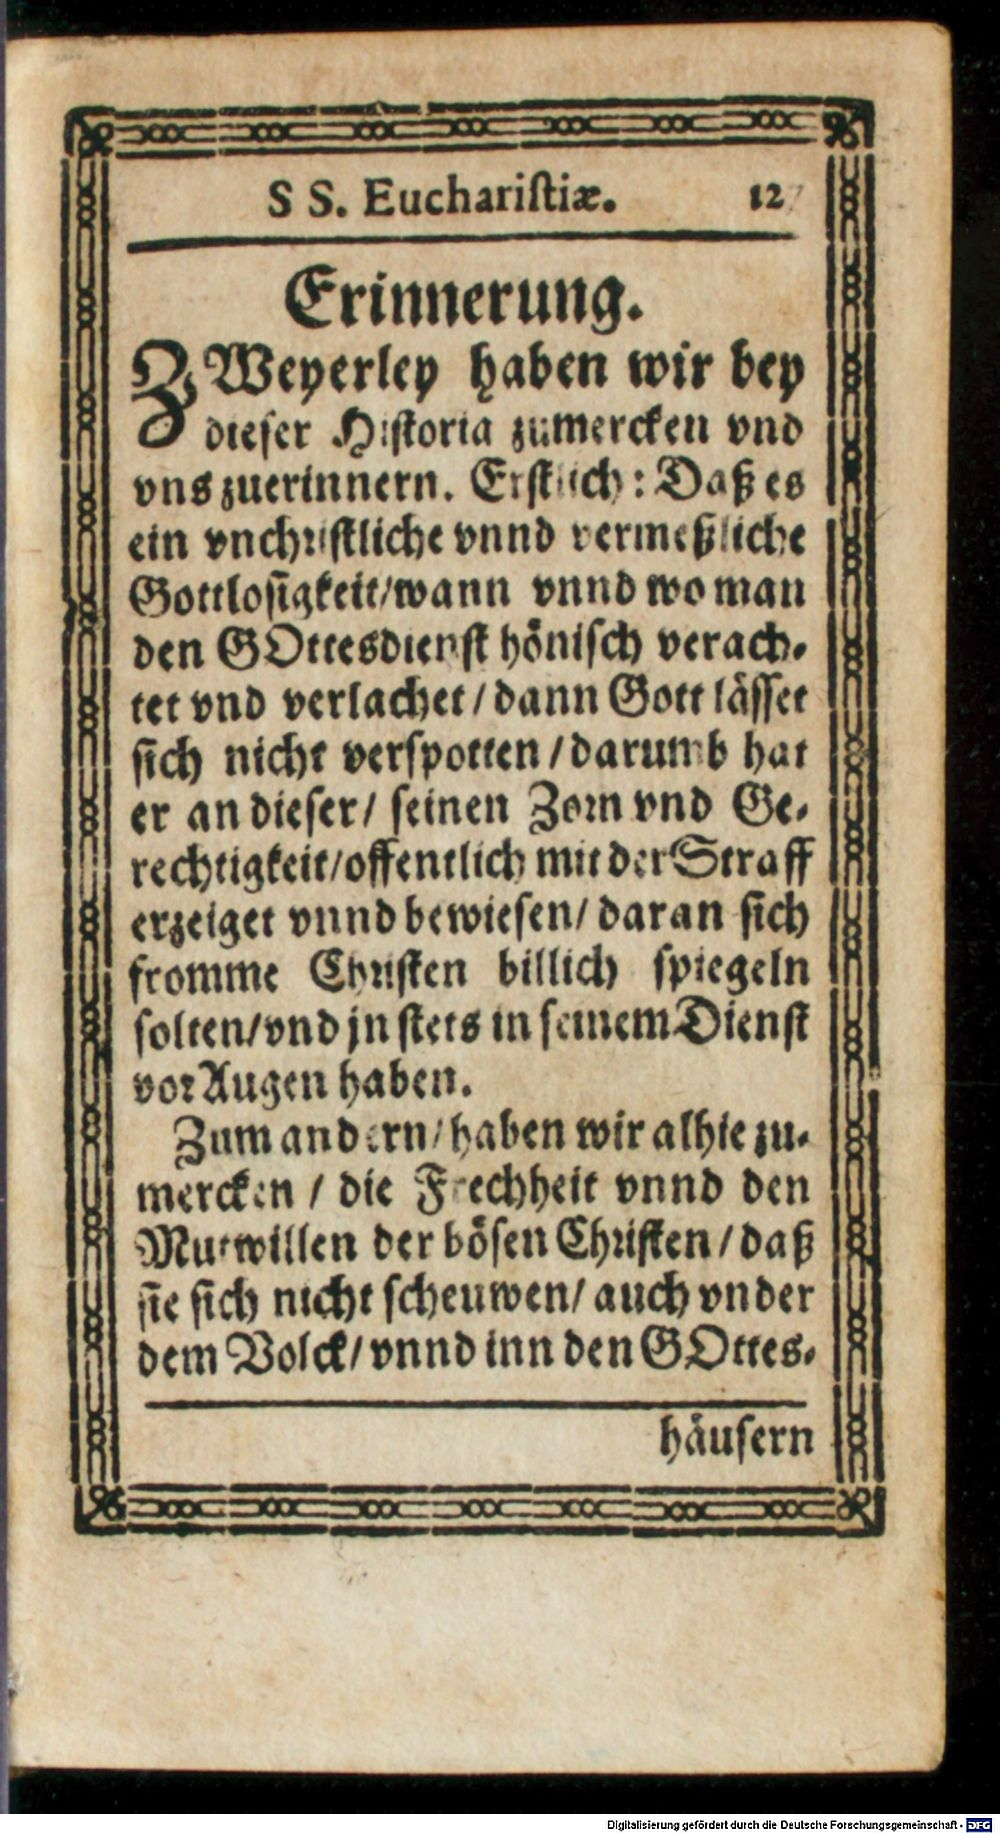 SS. Euchariſtiæ. 127
Erinnerung.
ZWeyerley haben wir bey
dieſer Hiſtoria zumercken vnd
vns zuerinnern. Erſtlich: Daß es
ein vnchriſtliche vnnd vermeßliche
Gottloſigkeit/wann vnnd wo man
den GOttesdienſt höniſch verach-
tet vnd verlachet/dann Gott läſſet
ſich nicht verſpotten/darumb hat
er an dieſer/ ſeinen Zorn vnd Ge-
rechtigkeit/offentlich mit der Straff
erzeiget vnnd bewieſen/daran ſich
fromme Chriſten billich ſpiegeln
ſolten/vnd jn ſtets in ſeinem Dienſt
vor Augen haben.
Zum andern/haben wir alhie zu-
mercken / die Frechheit vnnd den
Mutwillen der böſen Chriſten/daß
ſie ſich nicht ſcheuwen/auch vnder
dem Volck/vnnd inn den GOttes-
häuſern
Digitalisierung gefördert durch die Deutsche Forschungsgemeinschaft - DFG